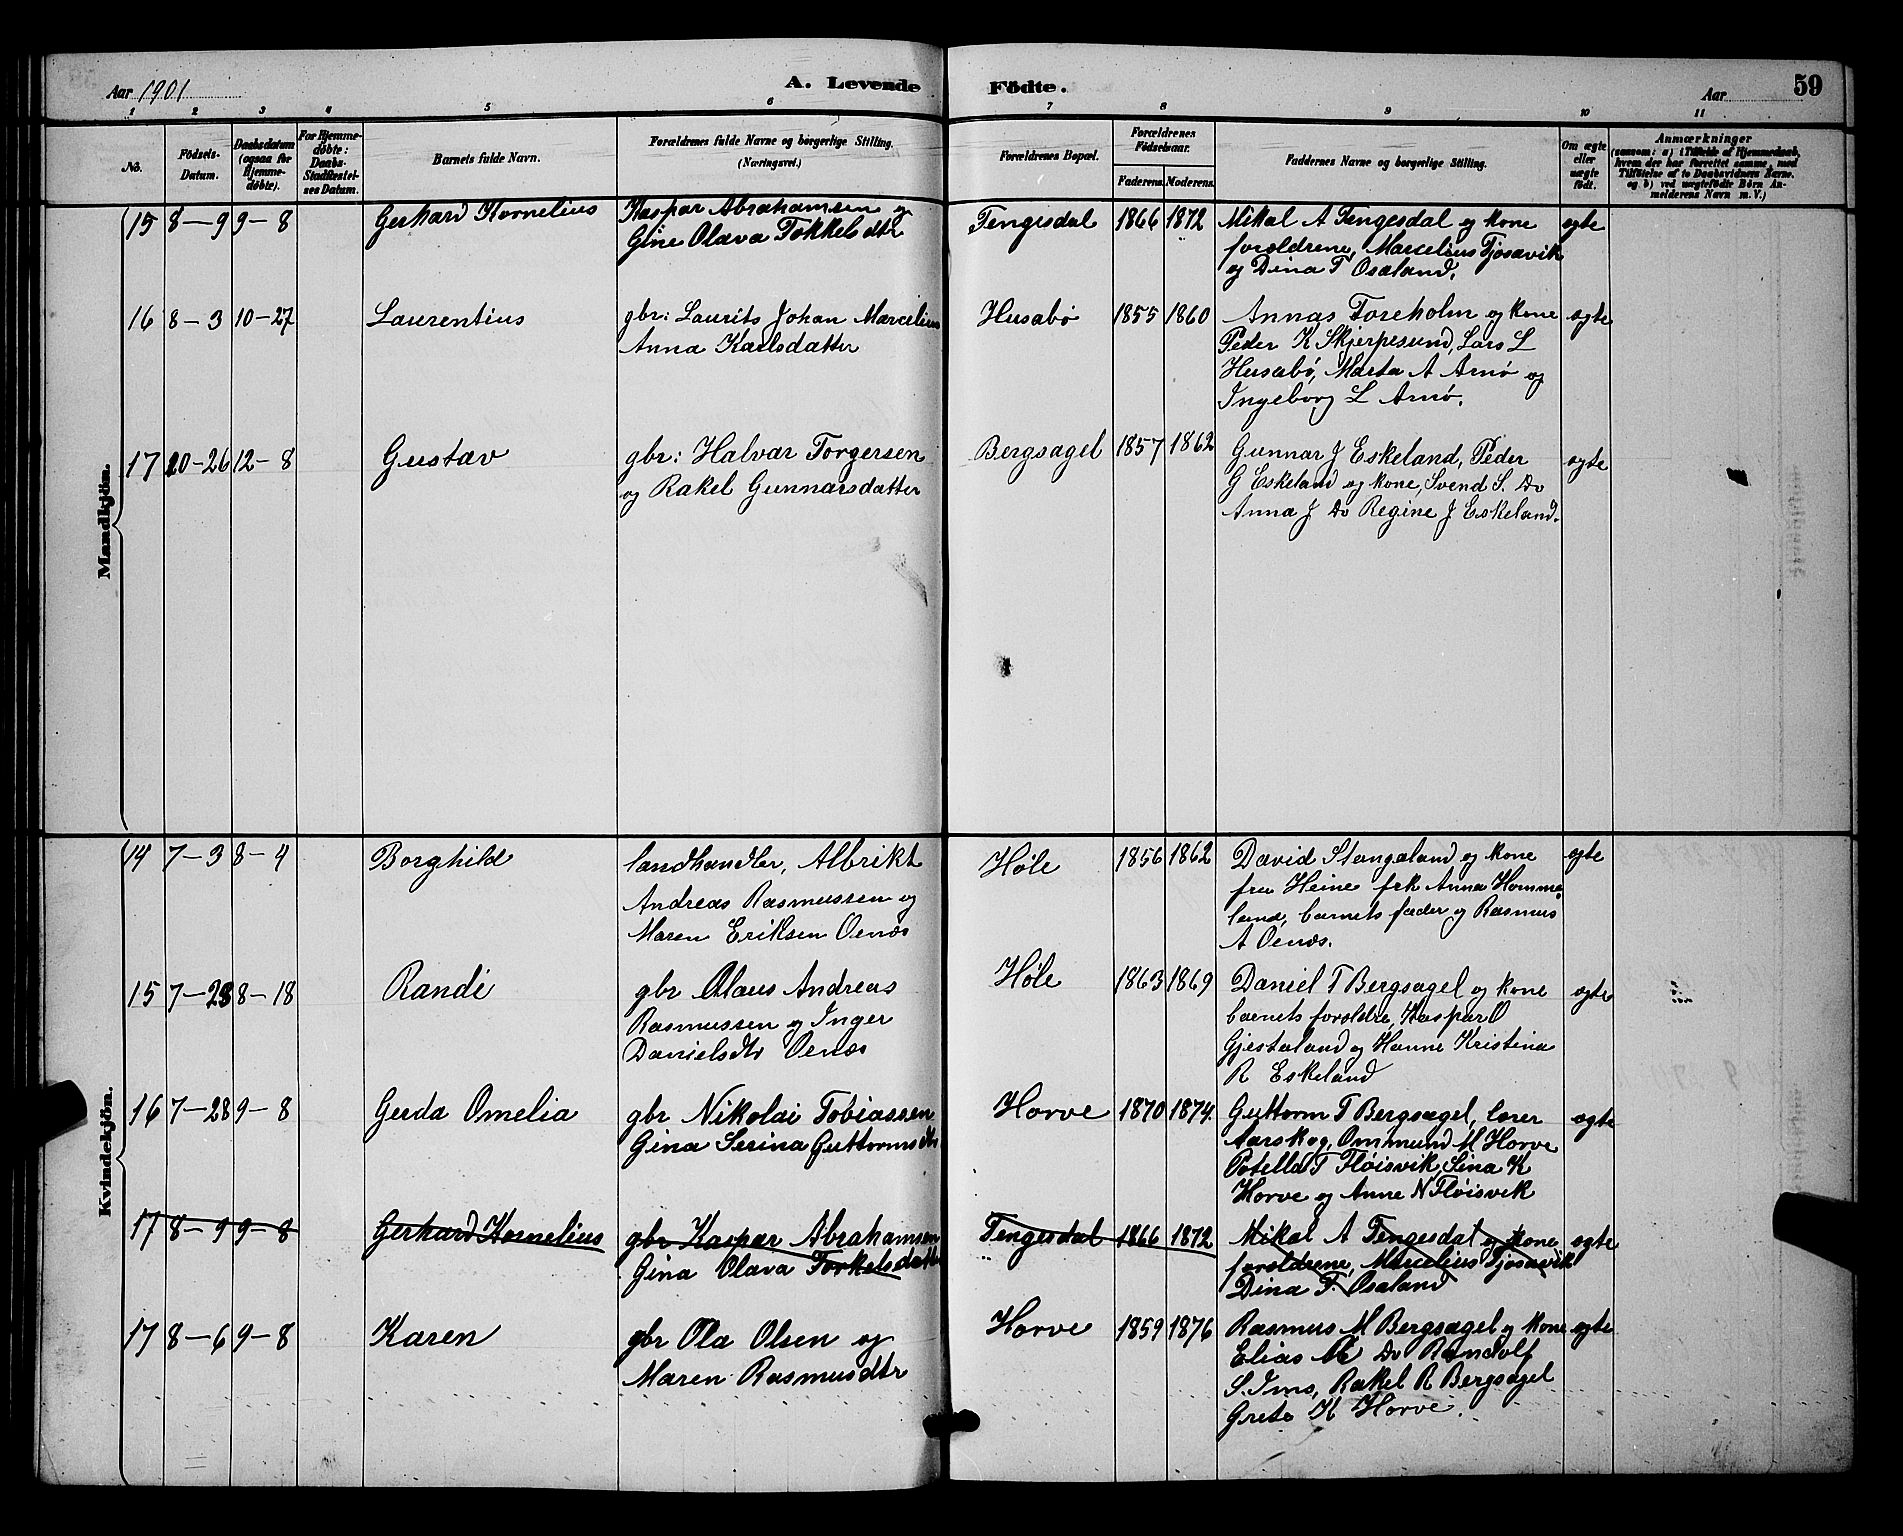 Aar 1901 A. Levende Födte. Aar 59
1 2 3 4 5 6 7 8 9 10 11
No.
Födsels-
Datum.
Daabsdatum
(ogsaa for
Hjemme-
döbte).
For Hjemme-
döbte:
Daabs-
Stadfæstel-
ses Datum.
Barnets fulde Navn.
Forældrenes fulde Navne og borgerlige Stilling.
(Næringsvei.)
Forældrenes Bopæl.
Forældrenes
Födselsaar.
Faderens. Moderens.
Faddernes Navne og borgerlige Stilling.
Om ægte
eller
uægte
født.
Anmærkninger
(saasom: a) i Tilfælde af Hjemmedaab,
hvem der har forrettet samme, med
Tilföielse af to Daabsvidners Navne.
og b) ved uægtefödte Börn An-
melderens Navn m. V.)
Mandkjön.
15 8-9 9-8 Gerhard Kornelius
Kaspar Abrahamsen og
Gine Olava Tokkelsdtr
Tengesdal 1866 1872
Mikal A Tengesdal og kone
forældrene, Marcelius Tjosavik
og Dina T Osaland.
ægte
16 8-3 10-27 Laurentius
gbr: Laurits Johan Marcelius
Anna Karlsdatter
Husabø 1855 1860
Annas Foreholm og kone
Peder K Skjerpesund, Lars L
Husabø, Marta A Arnø og
Ingeborg L Arnø.
ægte
17 10-26 12-8 Gustav
gbr: Halvar Torgersen
og Rakel Gunnarsdatter
Bergsagel 1857 1862
Gunnar J Eskeland, Peder
G Eskeland og kone, Svend S. Do
Anna J Do Regine J Eskeland.
ægte
Kvindekjön.
14 7-3 8-4 Borghild
landhandler, Albrikt
Andreas Rasmussen og
Maren Eriksen Oenæs
Høle 1856 1862
David Stangaland og kone
fru Heine frk Anna Homme
land, barnets fader og Rasmus
A Oenæs.
ægte
15 7-28 8-18 Randi
gbr Olaus Andreas
Rasmussen og Inger
Danielsdtr Oenæs
Høle 1863 1869
Daniel T Bergsagel og kone
barnets forældre, Kaspar O
Gjestaland og Hanne Kristina
R Eskeland
ægte
16 7-28 9-8 Gerda Omelia
gbr Nikolai Tobiassen
Gina Serina Guttormsdtr
Horve 1870 1874.
Guttorm T Bergsagel, lærer
Aarskog, Ommund M Horve
Potella T Fløisvik, Sina K
Horve og Anne N Fløisvik
ægte
17 8-9 9-8 Gerhard Kornelius
gbr Kaspar Abrahamsen
Gina Olava Torkelsdatter
Tengesdal 1866 1872
Mikal A Tengesdal og kone
forældrene, Marcelius Tjosavik
Dina T. Osaland
ægte
17 8-6 9-8 Karen
gbr Ola Olsen og
Maren Rasmusdtr
Horve 1859 1876
Rasmus M Bergsagel og kone
Elias M Do Randolf
S. Ims, Rakel R Bergsagel
Grete K Horve.
ægte